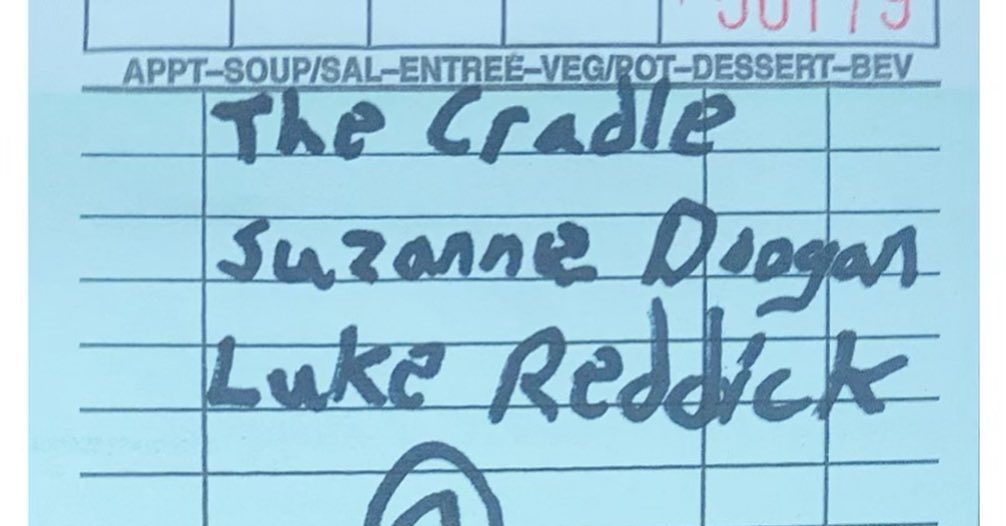 50179
APPT–SOUP/SAL–ENTREE–VEG/POT–DESSERT–BEV
The Cradle
Suzanne Doogan
Luke Reddick